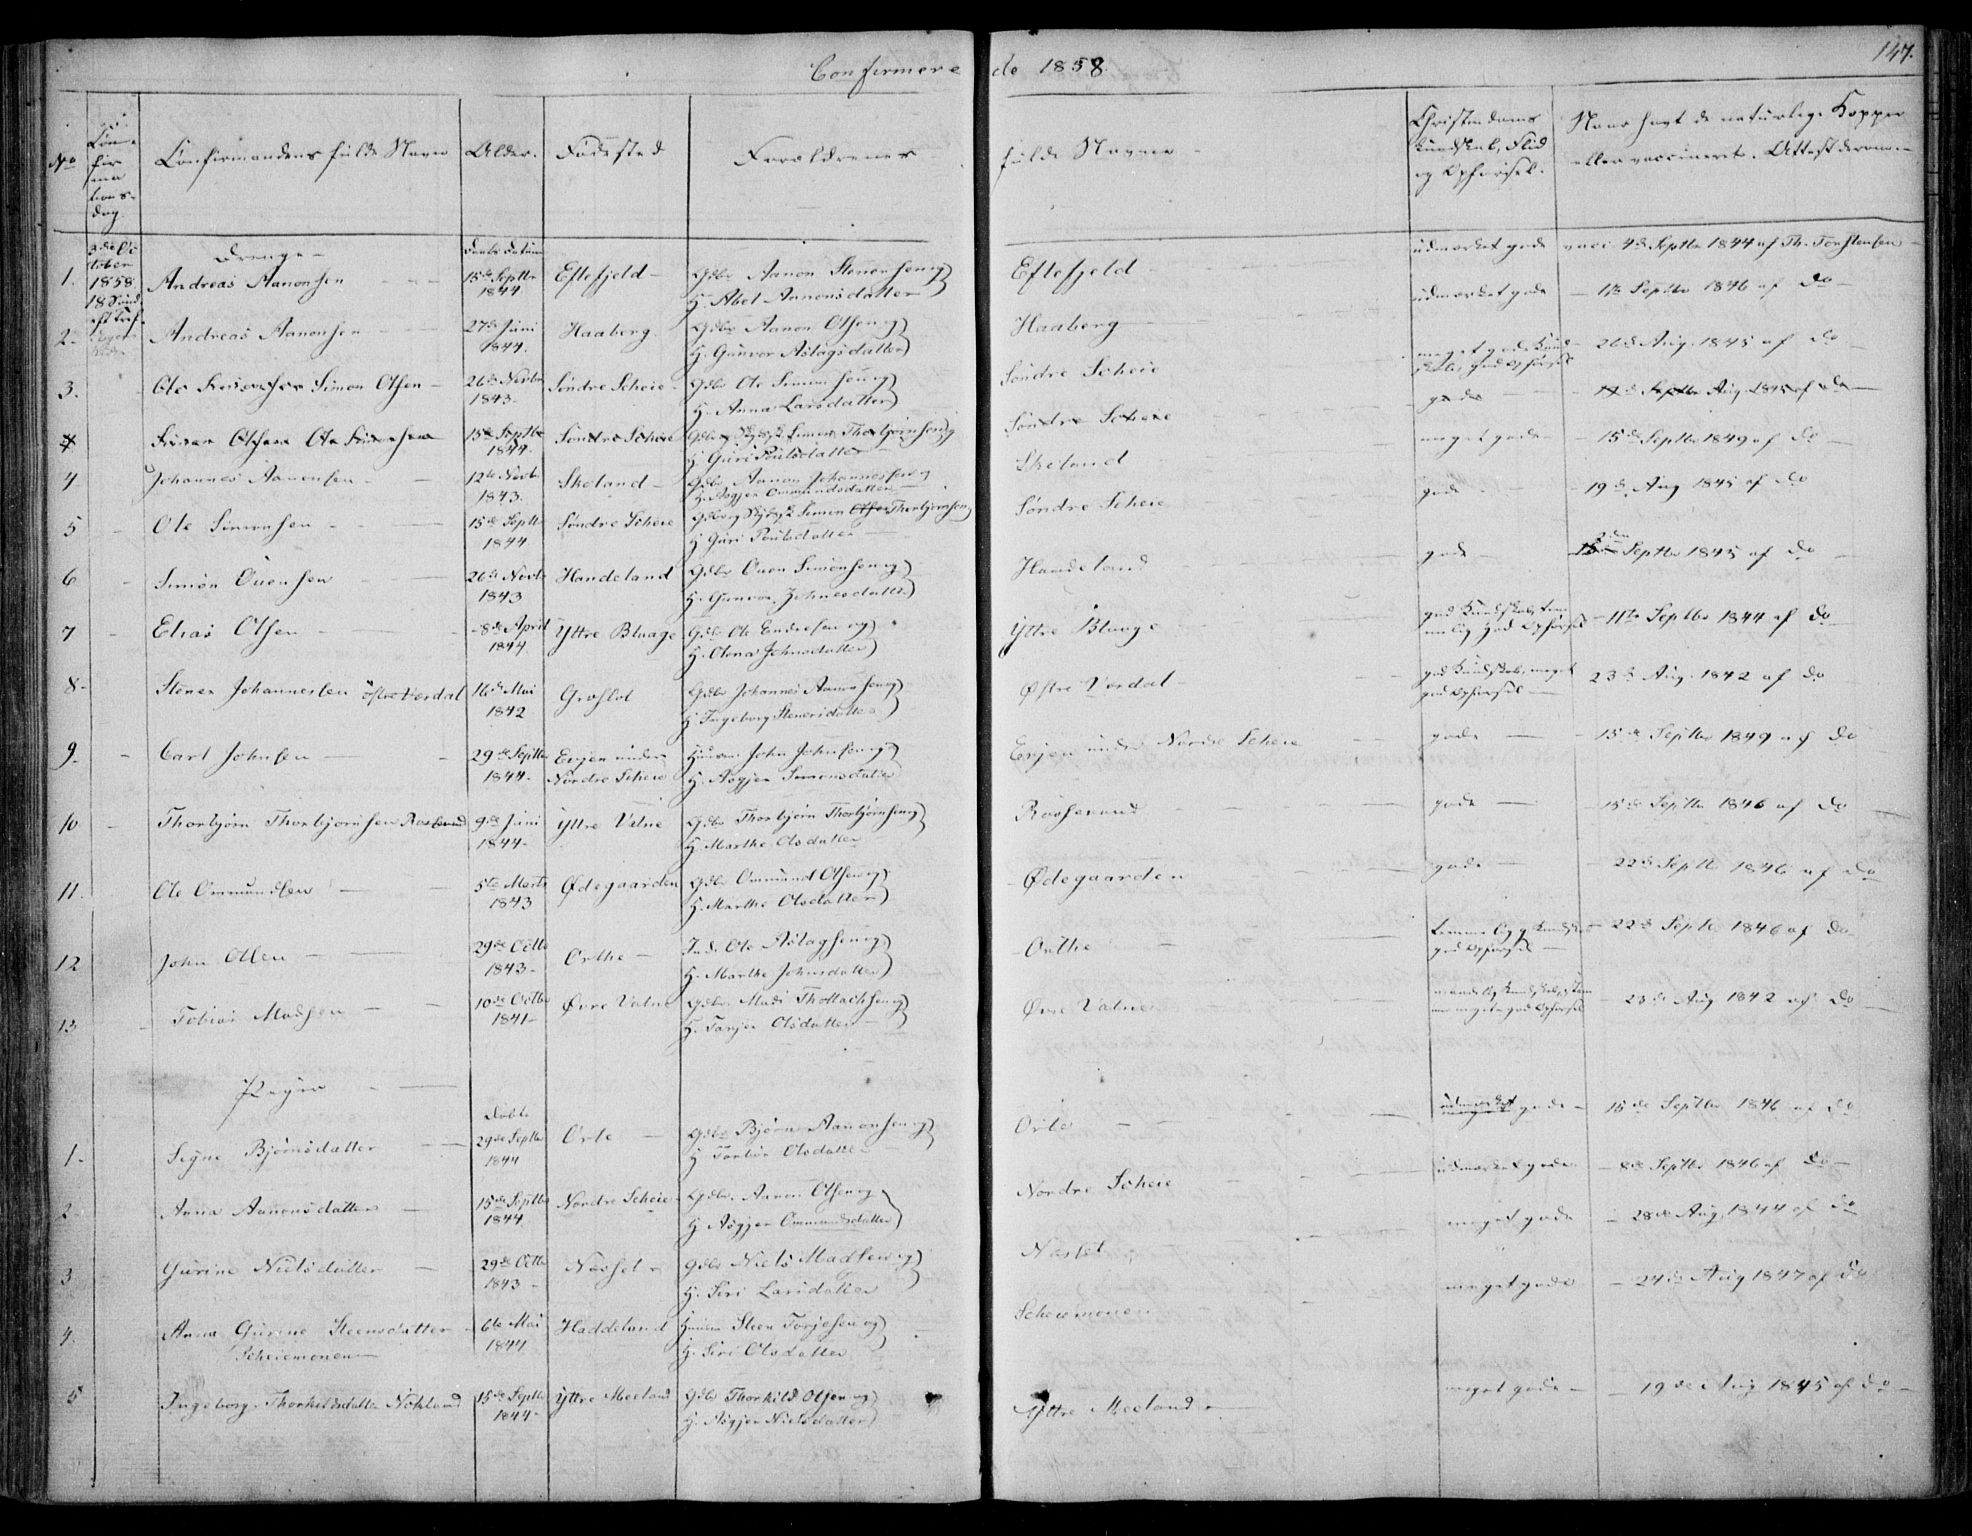 Confirmerede 1858.
147.
No
Con-
fir
ma
tions-
dag
Confirmandens fulde Navn
Alder.
Födested
Forældrenes
fulde Navne
Christendoms
Kundskab, Flid
og Opførsel.
Naar havt de naturlige Kopper
eller vaccineret. Attest derom.
3die Oc
tober
1858
18 Sönd.
eft Tref.
Drenge
Fødsels Datum
1. Andreas Aanonsen 15de Septbr 1844 Eftefjeld Gdbr Aanon Stenersen og
H. Abel Aanonsdatter Eftefjeld udmærket gode vacc. 4de Septbr 1844 af Th. Torstensen
2. Andreas Aanonsen 27de Juni 1844. Haaberg Gdbr Aanon Olsen og
H. Gunvor Aslagsdatter Haaberg udmærket gode 11te Septbr 1846 af Do
3. Simon Olsen 26de Novbr 1843. Söndre Scheie Gdbr Ole Simonsen og
H. Anna Larsdatter Söndre Scheie meget gode Kund- 26de Aug. 1845 af Do
Ole Simonsen 15de Septbr 1844. Söndre Scheie Gdbr Simon Thorbjörnsen og
H. Guri Poulsdatter Söndre Scheie gode Aug. 1845 af Do
4 Johannes Aanonsen 12te Novb. 1843. Skeland Gdbr Aanon Johannessen og
H. Asgjer Ommundsdatter Skeland meget gode 15de Septbr 1849 af Do
5 Ole Simonsen 15de Septbr 1844. Söndre Scheie Simon Olsen Thorbjörnsen og
H. Guri Poulsdatter Söndre Scheie gode 19de Aug 1845 af Do
6 Simon Ouensen 26de Novbr 1843 Handeland Gdbr Ouen Simonsen og
H. Gunvor Johnsdatter Handeland gode Septbr 1845 af Do
7 Elias Olsen 8de April 1844. Yttre Bluage Gdbr Ole Endresen og
H. Olena Johnsdatter Yttre Bluage god Kundskab, 11te Septbr 1844 af Do
8 Stener Johannessen Östre Verdal 16de Mai 1842 Groslol Gdbr Johannes Aanonsen og
H. Ingeborg Stenersdatter Østre Verdal god Kundskab, meget
god Opførsel 23de Aug. 1842 af Do
9. Carl Johnsen 29de Septbr 1844. Enjen under
Nordre Scheie Huusm. John Johnsen og
H. Asgjer Simonsdatter Enjen under Nordre Scheie gode 15de Septbr 1849 af Do
10 Thorbjörn Thorbjörnsen 9de Juni 1844. Yttre Valne Gdbr Thorbjörn Thorbjörnsen og
H. Marthe Olsdatter gode 15de Septbr 1846 af Do
11. Ole Ommundsen 5te Marts 1843 Ødegaarden Gdbr Ommund Olsen og
H. Marthe Olsdatter Ødegaarden gode 22de Septb. 1846 af Do
12 John Olsen 29de Octbr 1843. Orthe Ind. Ole Aslagsen og
H. Marthe Johnsdatter Orthe god Opførsel 22de Septbr 1846 af Do
13. Tobias Madsen 10de Octbr 1841 Øvre Valne Gdbr. Mads Thollachsen og
H. Tarjer Olsdatter Øvre Valne 23de Aug 1842 af Do
Piger
Födte
1. Signe Bjørnsdatter 29de Septbr 1844 Orte Gdbr Bjørn Aanonsen og
H. Olsdatter Orte udmærket gode 15de Septbr 1846 af Do
2. Anna Aanonsdatter 15de Septbr 1844. Nordre Scheie Gdbr. Aanon Olsen og
H. Asgjer Ommundsdatter Nordre Scheie udmærket gode 8de Septbr 1846 af Do
3 Gurine Nielsdatter 29de Octbr 1843 Naset Gdbr Niels Madsen og
H. Siri Larsdatter Naset meget gode 28de Aug. 1844 af Do
4. Anna Gurine Steensdatter
Scheiemonen 6te Mai 1844 Haddeland Huusm Steen Torjesen og
H. Siri Olsdatter Scheiemonen meget gode 24de Aug 1847 af Do
5 Ingeborg Thorkildsdatter Nökland 15de Septbr 1844. Yttre Meeland Gdbr Thorkild Olsen og
H. Asgjer Nielsdatter Yttre Meeland meget gode 19de Aug 1845 af Do